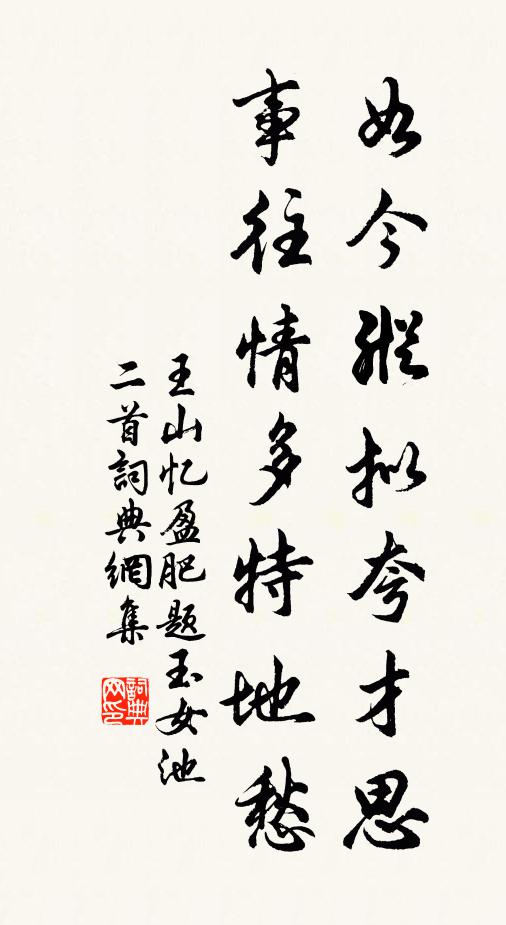 如今縱拟夸才思
事往情多特地愁
王山忆盈肥题玉女池
二首詞典網集
詞典
网印